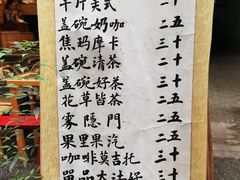 卡片美式 二十
盖碗奶咖 二五
焦玛摩卡 三十
盖碗清茶 二十
盖碗好茶 三十
花草皆茶 二五
雾隐門 二五
果里果汽 二五
咖啡莫吉托 三十
單品大法好 三十